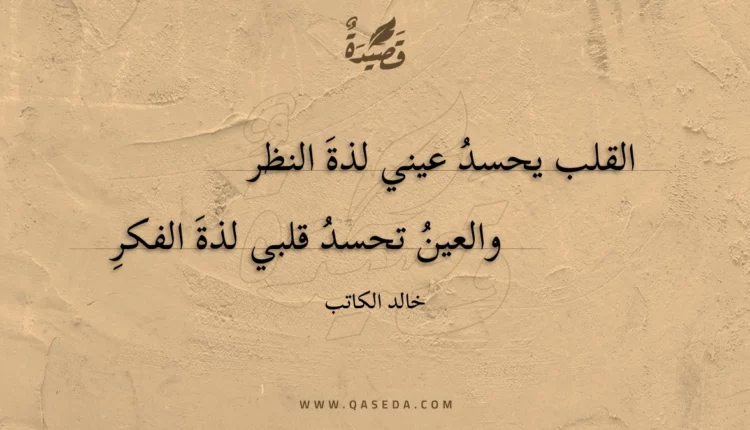 قَصِيْدَةٌ
القلب يحسدُ عيني لذةَ النظر
والعينُ تحسدُ قلبي لذةَ الفكرِ
خالد الكاتب
WWW.QASEDA.COM